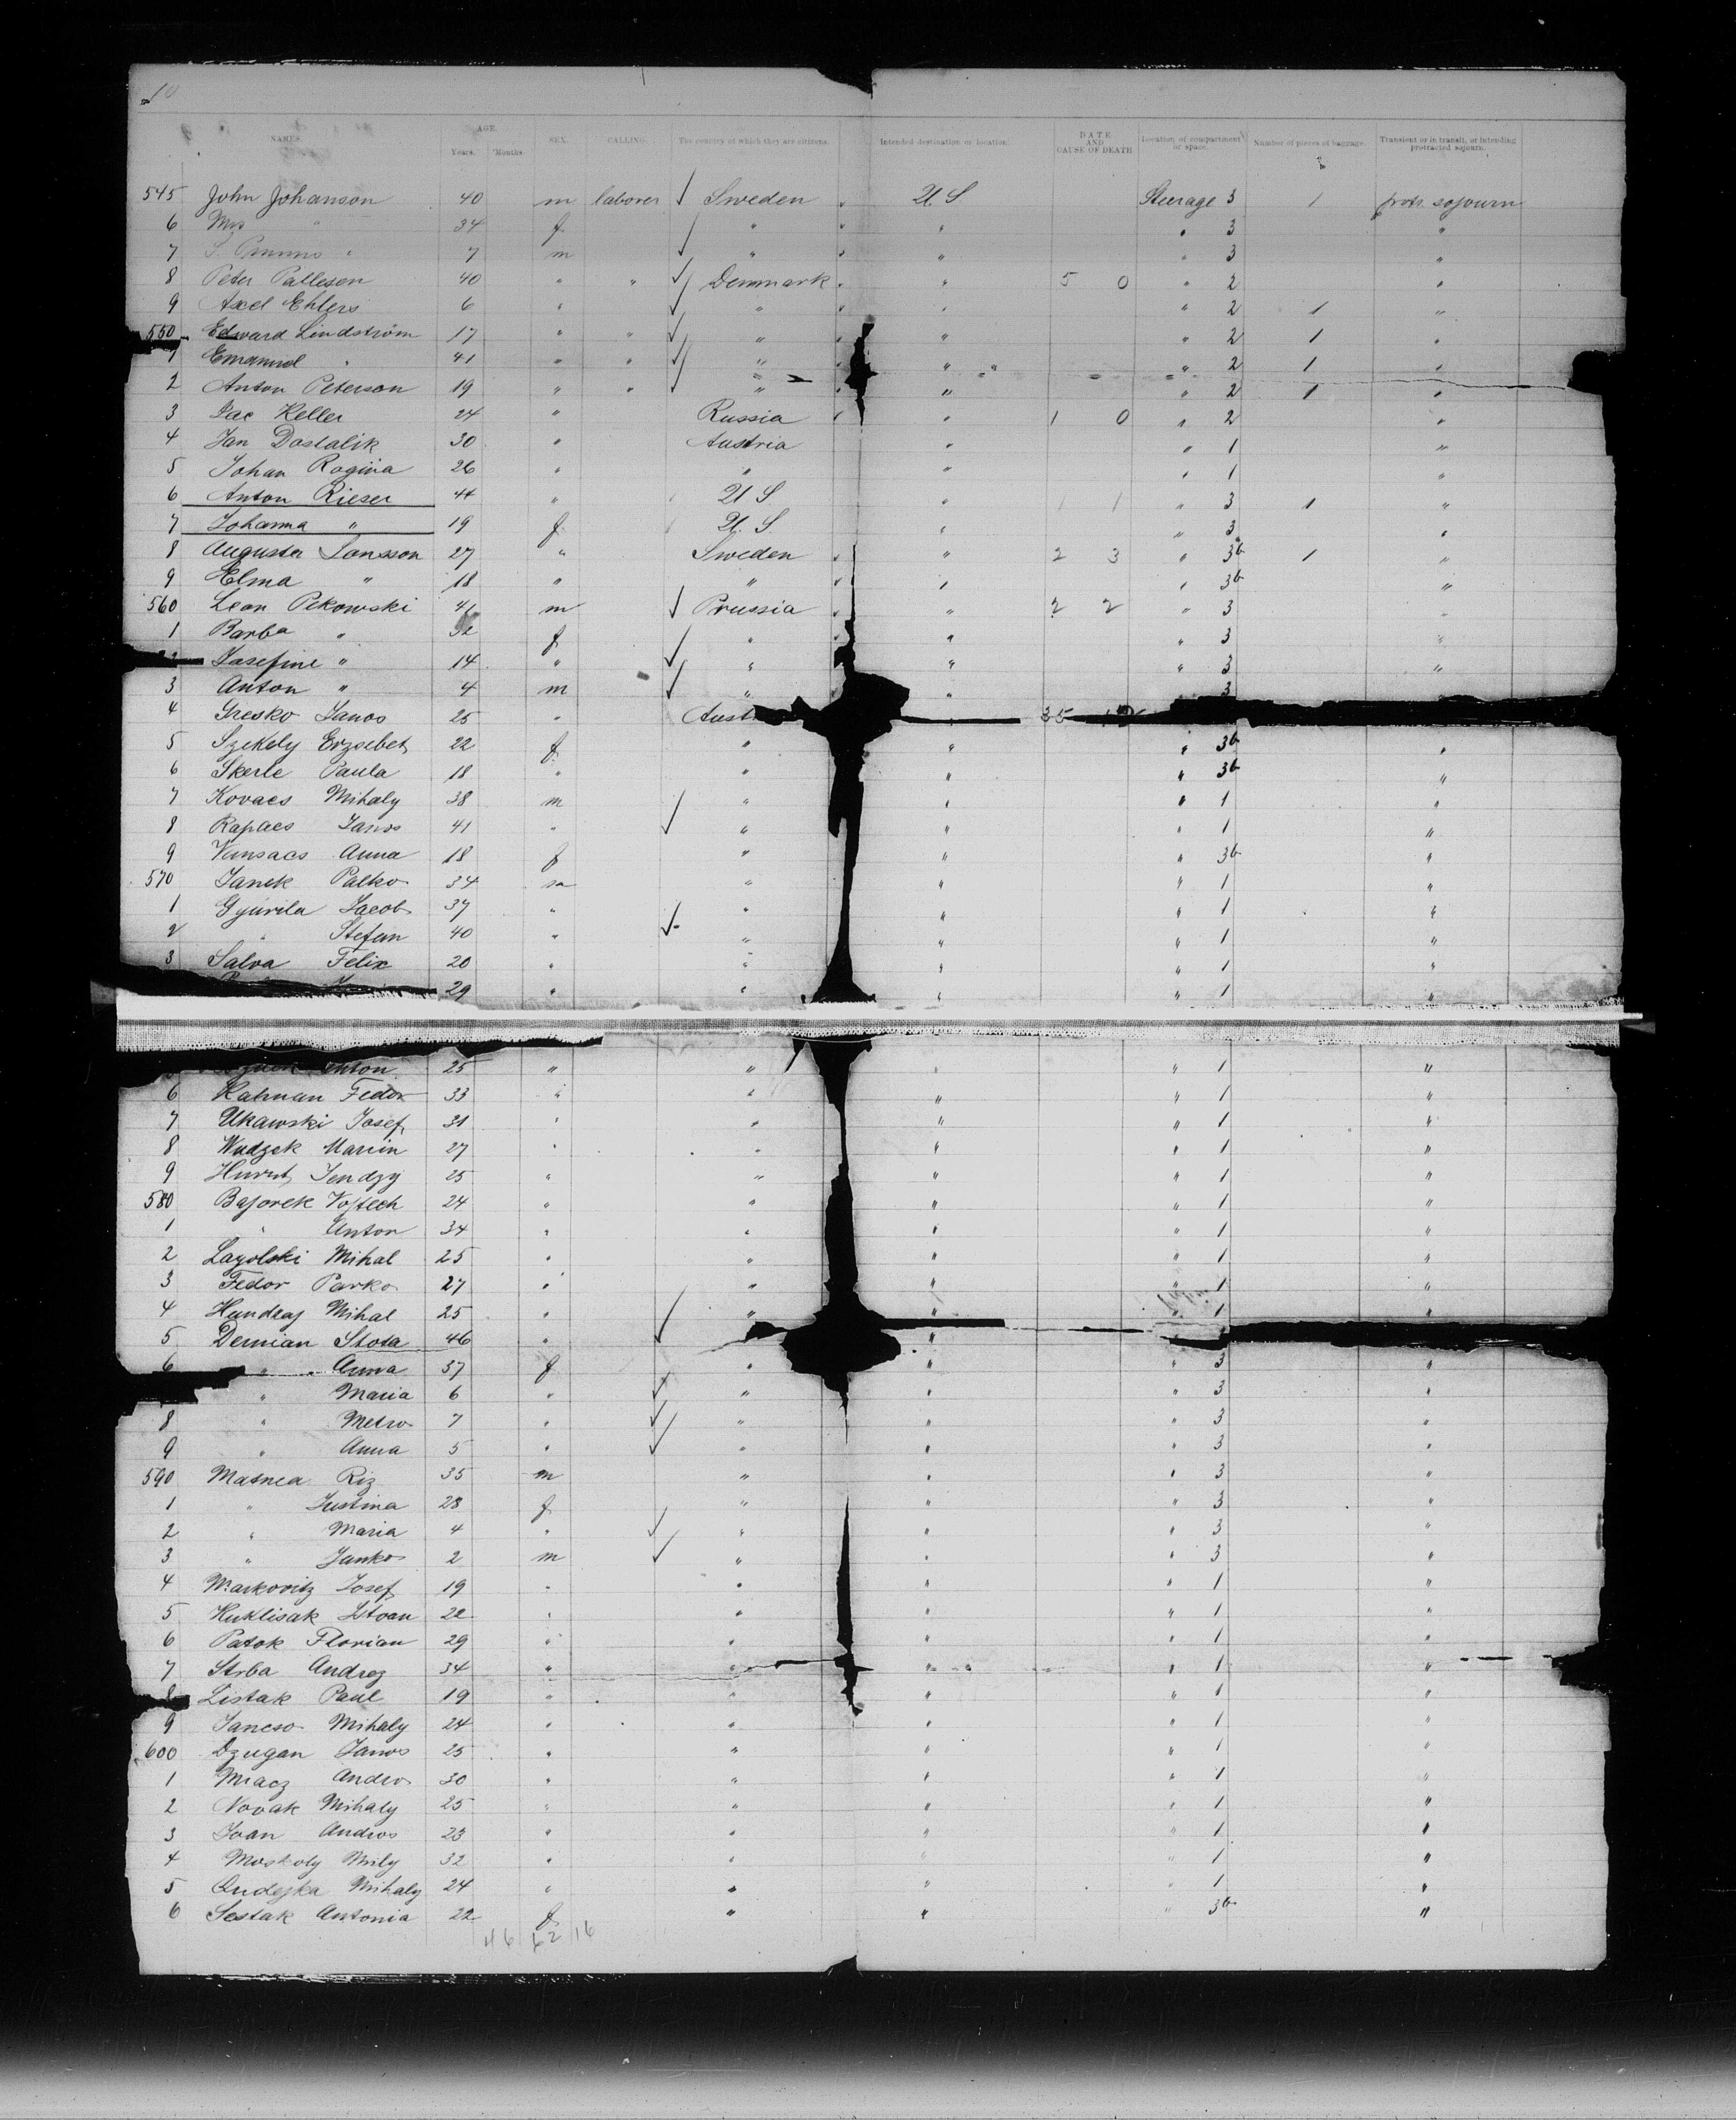 10
NAMES. AGE. Years. Months. SEX. CALLING. The country of which they are citizens. Intended destination or location. DATE AND CAUSE OF DEATH Location of compartment or space. Number of pieces of baggage. Transient or in transit, or intending protracted sojourn.
545 John Johanson 40 m laborer ✓ Sweden " U S Steerage 3 1 protr. sojourn
6 Mrs " 34 f ✓ " " " " 3 "
7 " 7 m ✓ " " " " 3 "
8 Peter Pallesen 40 " " ✓ Denmark " " 5 0 " 2 "
9 Axel Ehlers 6 " ✓ " " " " 2 1 "
550 Edward Lindström 17 " " ✓ " " " " 2 1 "
1 Emanuel " 41 " " ✓ " " " " 2 1 "
2 Anton Peterson 19 " " ✓ " " " " 2 1 "
3 Keller 24 " Russia " " 1 0 " 2 "
4 Jan Dostalik 30 " Austria " " 1 "
5 Johan Rogina 26 " " " " 1 "
6 Anton Rieser 44 " U S " 1 1 " 3 1 "
7 Johanna " 19 f U. S " " 3 "
8 Augusta Jansson 27 " Sweden " " 2 3 " 3b 1 "
9 Elma " 18 " " " " " 3b "
560 Leon Pekowski 41 m ✓ Prussia " " 2 2 " 3 "
1 Barba " 32 f ✓ " " " " 3 "
Josefine " 14 " ✓ " " " 3 "
3 Anton " 4 m ✓ " " " 3
4 Gresko Janos 25 " Aust " 35
5 Szekely Erzsebet 22 f " " " 3b "
6 Skerle Paula 18 " " " " 3b "
7 Kovacs Mihaly 38 m ✓ " " " 1 "
8 Rapacs Janos 41 " ✓ " " " 1 "
9 Vansacs Anna 18 f " " " 3b "
570 Janek Palko 34 m " " " 1 "
1 Gyurila Jacob 37 " " " " 1 "
2 " Stefan 40 " ✓ " " " 1 "
3 Salva Felix 20 " " " " 1 "
29 " " " " 1 "
Anton 25 " " " " 1 "
6 Kalman Fedor 33 " " " " 1 "
7 Ukawski Josef 31 " " " " 1 "
8 Wudzek Marcin 27 " " " " 1 "
9 Jendzy 25 " " " " 1 "
580 Bajorek Vojtech 24 " " " " 1 "
1 " Anton 34 " " " " 1 "
2 Lazolski Mihal 25 " " " " 1 "
3 Fedor Parko 27 " " " " 1 "
4 Hundeaj Mihal 25 " ✓ " " " 1 "
5 Demian Stosa 46 " ✓ "
6 " Anna 37 f " " " 3 "
" Maria 6 " ✓ " " " 3 "
8 " Metro 7 " ✓ " " " 3 "
9 " Anna 5 " ✓ " " " 3 "
590 Masnea Riz 35 m " " " 3 "
1 " Justina 28 f " " " 3 "
2 " Maria 4 " ✓ " " " 3 "
3 " Janko 2 m ✓ " " " 3 "
4 Markovitz Josef 19 " " " " 1 "
5 Kuklisak Istvan 22 " " " " 1 "
6 Patok Florian 29 " " " " 1 "
7 Strba Andrez 34 " " " " 1 "
8 Listak Paul 19 " " " " 1 "
9 Jancso Mihaly 24 " " " " 1 "
600 Dzugan Janos 25 " " " " 1 "
1 Mracz Andro 30 " " " " 1 "
2 Novak Mihaly 25 " " " " 1 "
3 Ivan Andros 23 " " " " 1 "
4 Moskoly Mily 32 " " " " 1 "
5 Ondejka Mihaly 24 " " " " 1 "
6 Sestak Antonia 22 f " " " 3b "
46 62 16